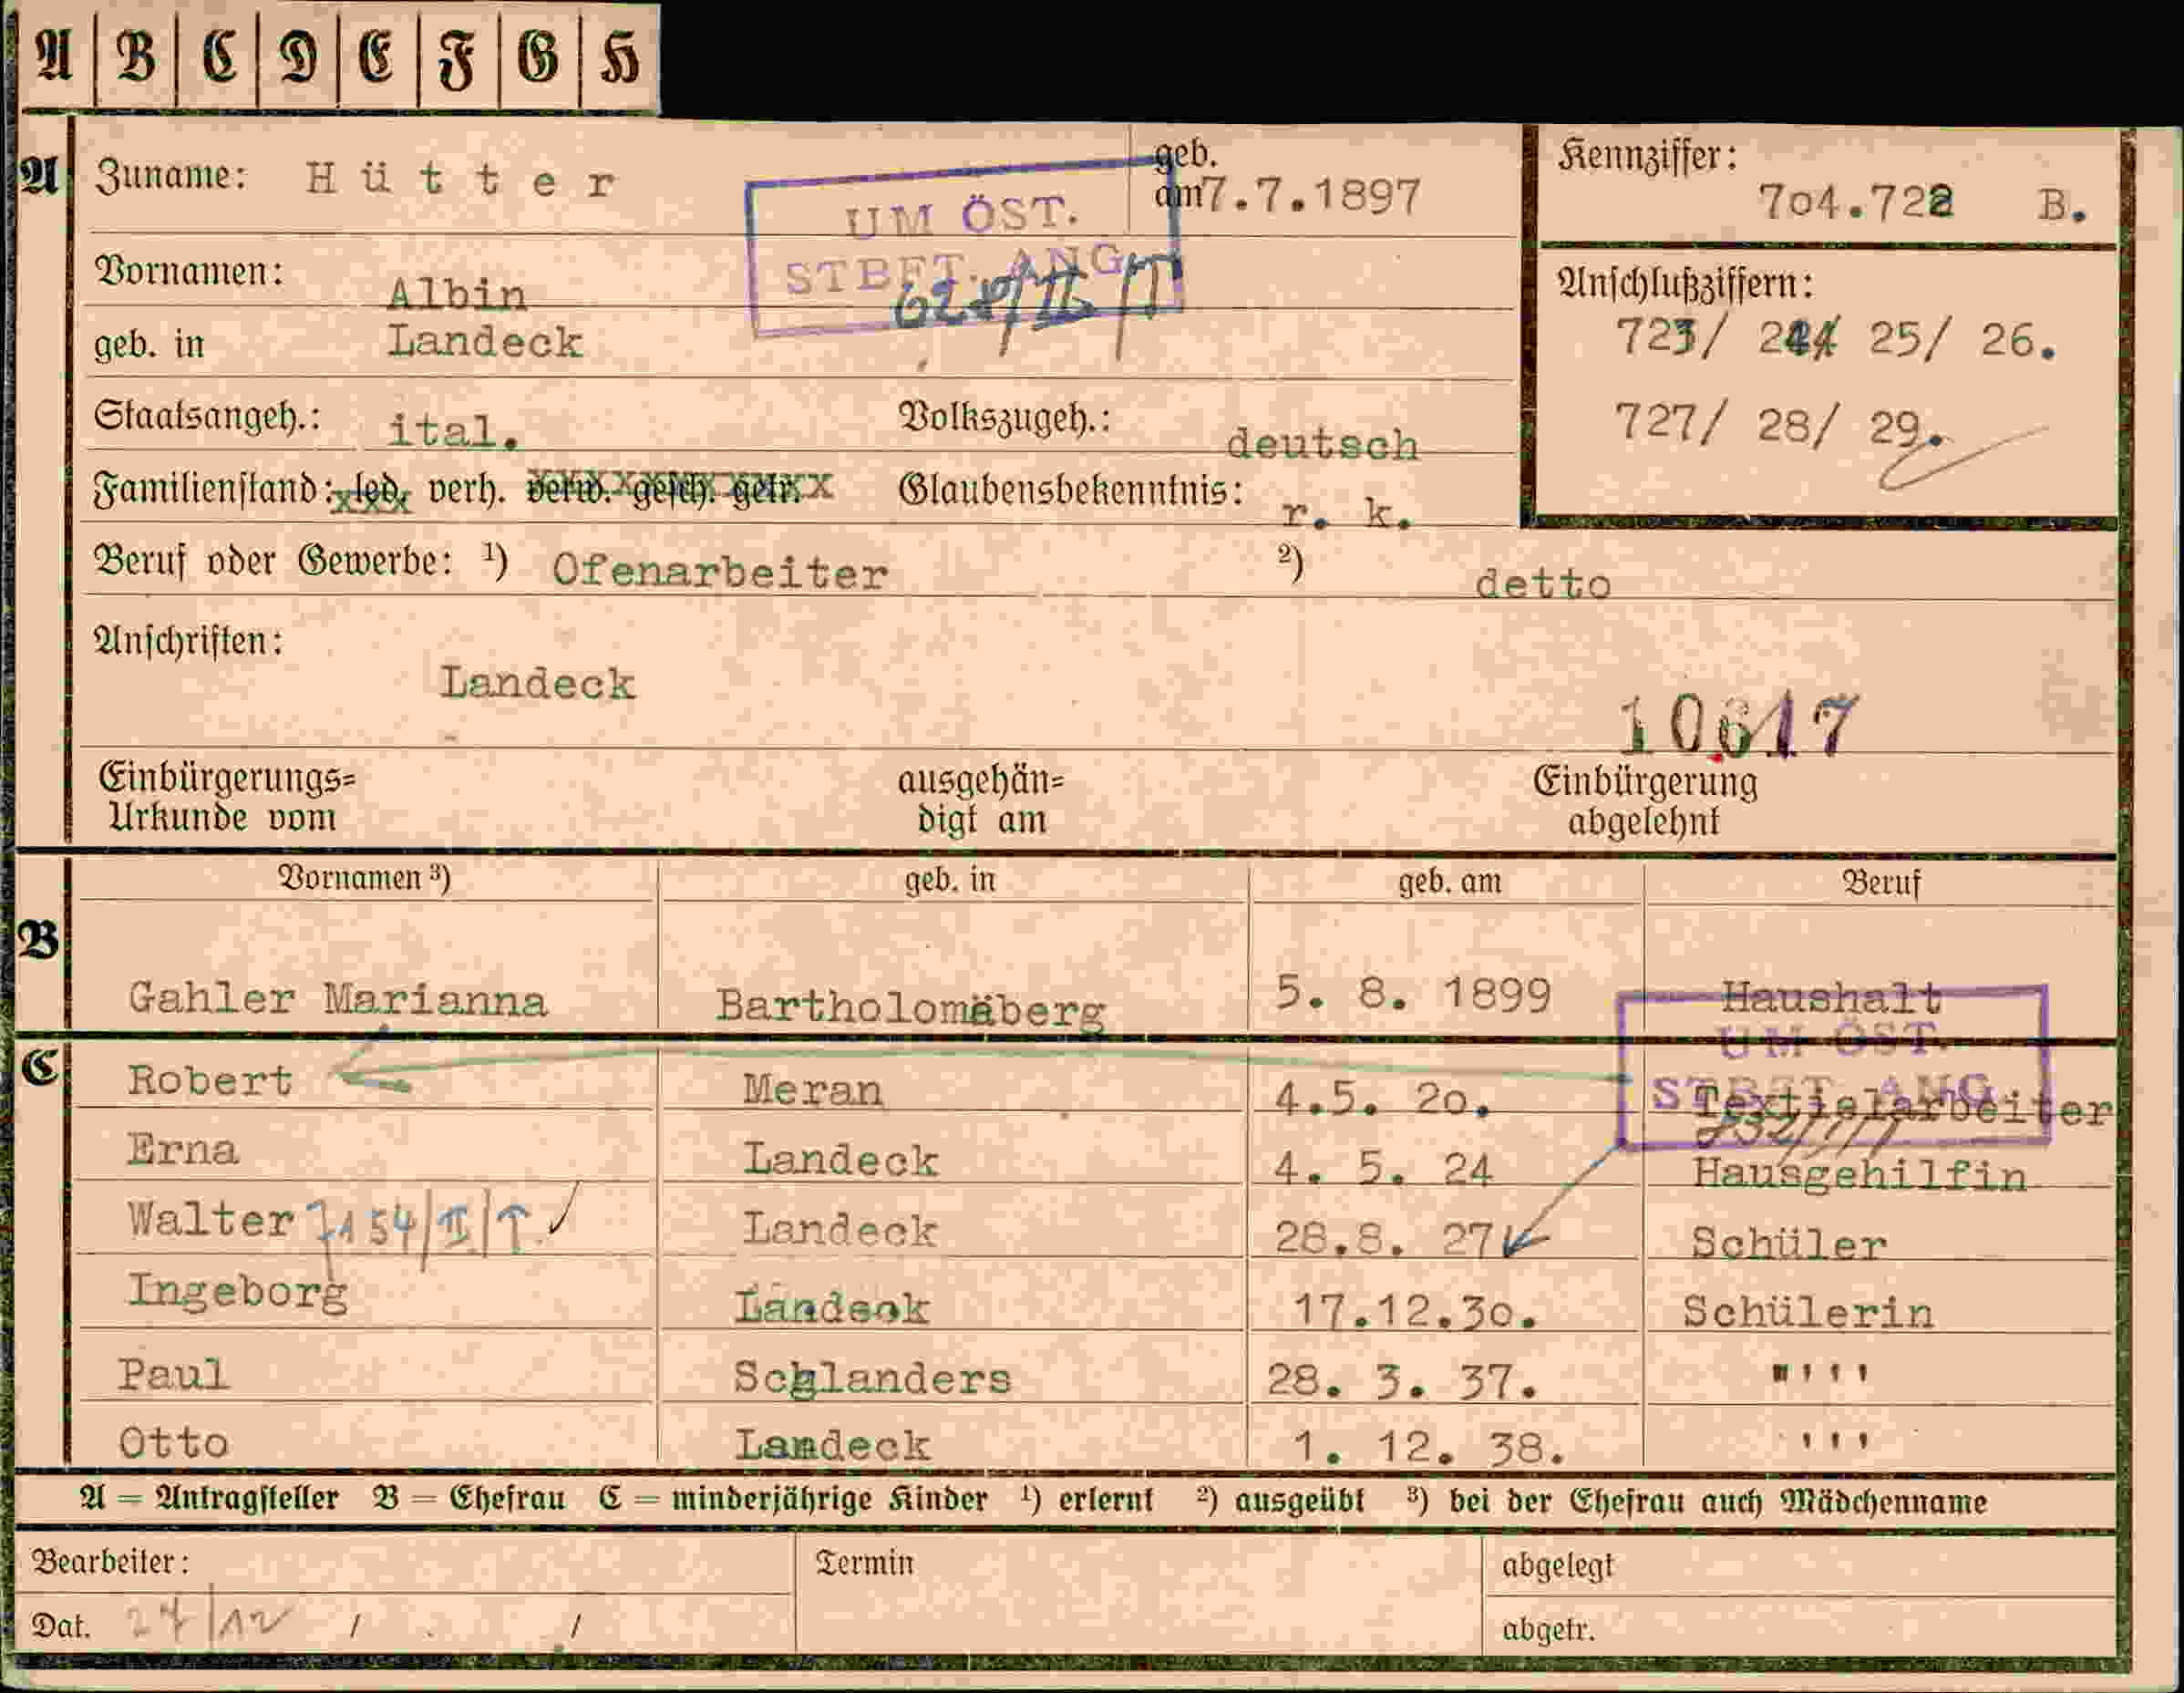 A B C D E F G H
A Zuname: Hütter geb. am 7.7.1897
UM ÖST.
STBFT. ANG.
Kennziffer:
704.722 B.
Vornamen: Albin
geb. in Landeck
Anschlußziffern:
723/ 24/ 25/ 26.
727/ 28/ 29.
Staatsangeh.: ital. Volkszugeh.: deutsch
Familienstand: led. verh. verw. gesch. getr. Glaubensbekenntnis: r. k.
Beruf oder Gewerbe: ¹) Ofenarbeiter ²) detto
Anschriften:
Landeck
10617
Einbürgerungs= Urkunde vom
ausgehän= digt am
Einbürgerung abgelehnt
Vornamen ³) geb. in geb. am Beruf
B Gahler Marianna Bartholomäberg 5. 8. 1899 Haushalt
UM ÖST.
STBFT. ANG.
C Robert Meran 4.5. 20. Textielarbeiter
Erna Landeck 4. 5. 24 Hausgehilfin
Walter Landeck 28.8. 27 Schüler
Ingeborg Landeck 17.12.30. Schülerin
Paul Schlanders 28. 3. 37. "'''
Otto Landeck 1. 12. 38. '''
A = Antragsteller B = Ehefrau C = minderjährige Kinder ¹) erlernt ²) ausgeübt ³) bei der Ehefrau auch Mädchenname
Bearbeiter: Termin abgelegt
Dat. 27/12 / / abgetr.